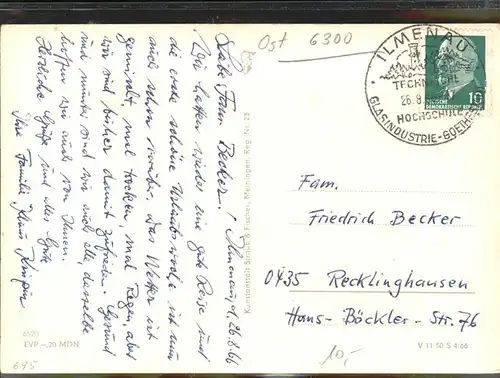 Ost 6300
ILMENAU
TECHN.
26.8.
HOCHSCHULE
GLASINDUSTRIE-GOETHE
DEUTSCHE
DEMOKRATISCHE REPUBLIK
10
Ilmenau, d. 26.8.66
Liebe Frau Becker!
Wir hatten wieder eine gute Reise und
die erste schöne Urlaubswoche ist nun
auch schon vorüber. Das Wetter ist
gemischt, mal trocken, mal Regen, aber
wir sind bisher damit zufrieden. Gesund
und munter sind wir auch alle, dasselbe
hoffen wir auch von Ihnen.
Herzliche Grüße und alles Gute
Ihre Familie Klaus
Kunstanstalt Straub & Fischer, Meiningen, Reg. Nr. 25
Fam.
Friedrich Becker
0435 Recklinghausen
Hans-Böckler-Str. 76
EVP –,20 MDN
695
10,-
V 11 50 S 4/66